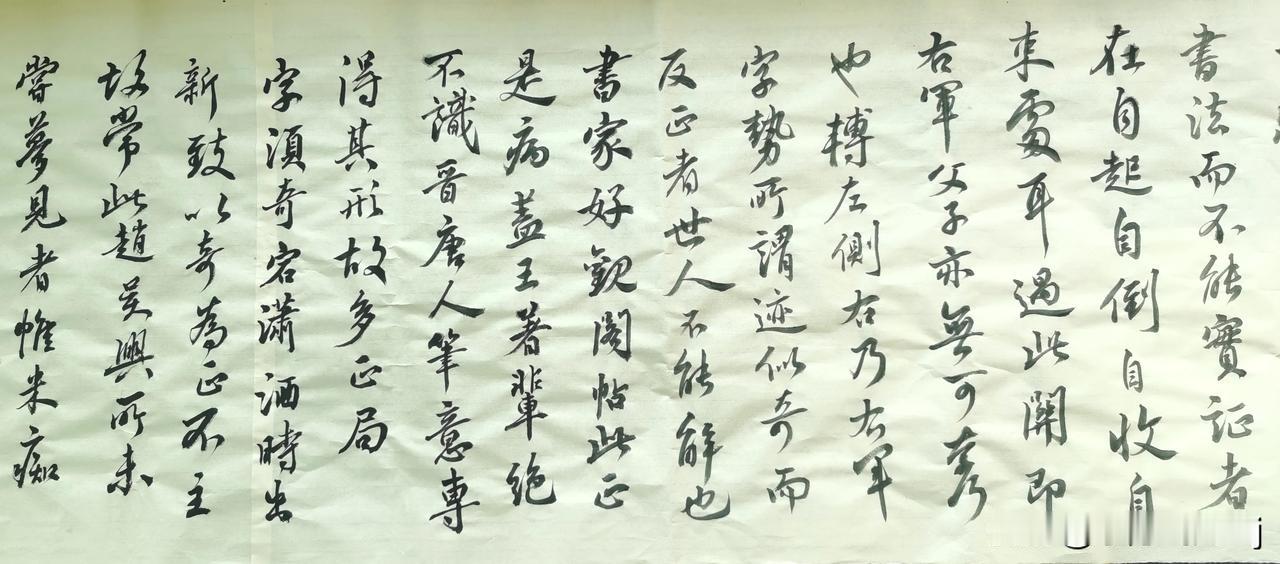 書法而不能實証者
在自起自倒自收自
束處耳過此關即
右軍父子亦無可奈
也轉左側右乃右軍
字勢所謂迹似奇而
反正者世人不能解也
書家好觀閣帖此正
是病蓋王著輩絶
不識晉唐人筆意專
得其形故多正局
字須奇宕瀟洒時出
新致以奇為正不主
故常此趙吳興所未
嘗夢見者惟米痴